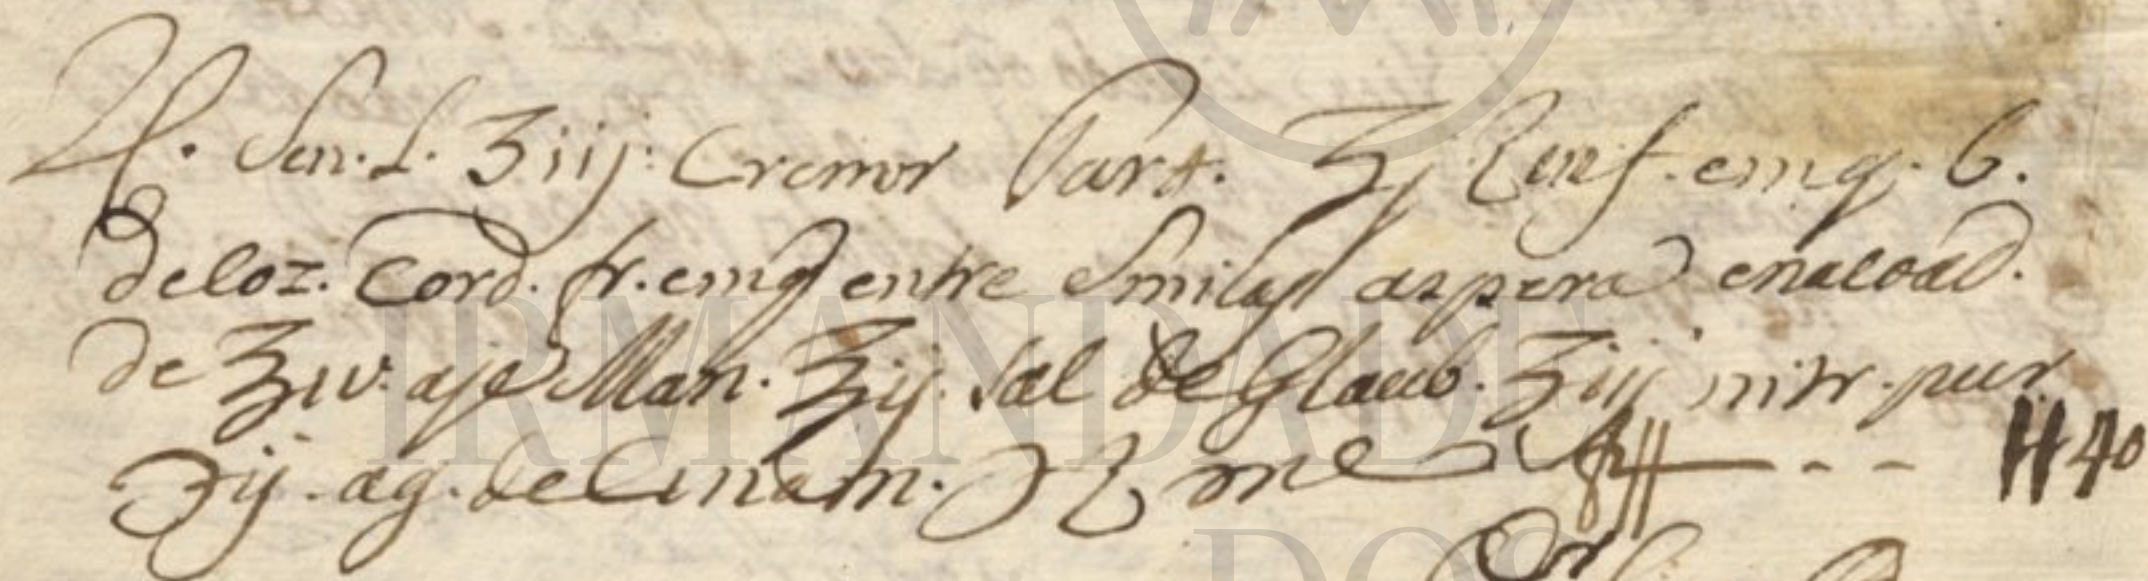 ℞. Sen. L. ʒiij. Cremor Tart. ʒj Inf. em q. b.
de coz. Cord. fr. em q entre Smilax aspera enacoad.
de ℥iv. aje Man. ℥ij. Sal de Glaub. ʒiij nitr. pur
℈ij. ag. de Cinam. me -- #40
IRMANDADE
DOS